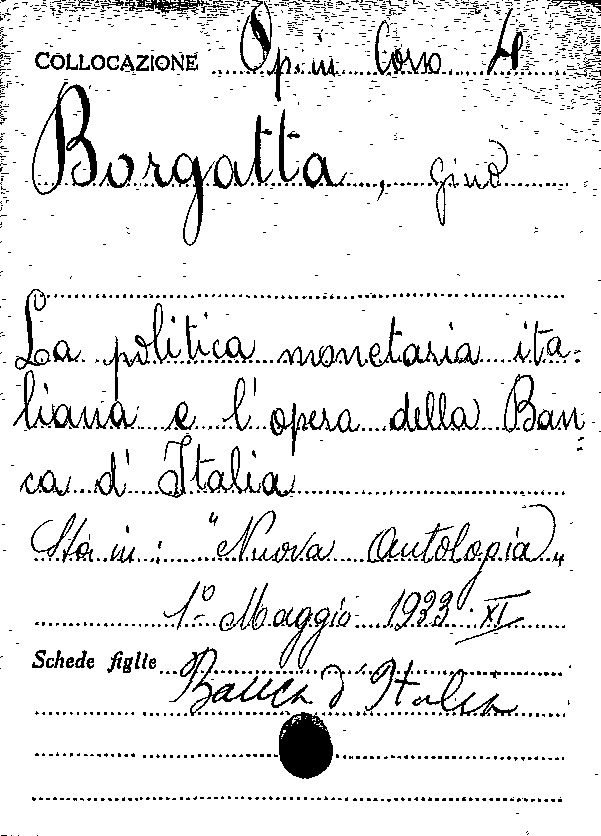 COLLOCAZIONE Op. in Corso
Borgatta, Gino
La politica monetaria ita-
liana e l'opera della Ban-
ca d'Italia
Sta in: "Nuova Antologia"
1º Maggio 1933 XI
Schede figlie Banca d'Italia